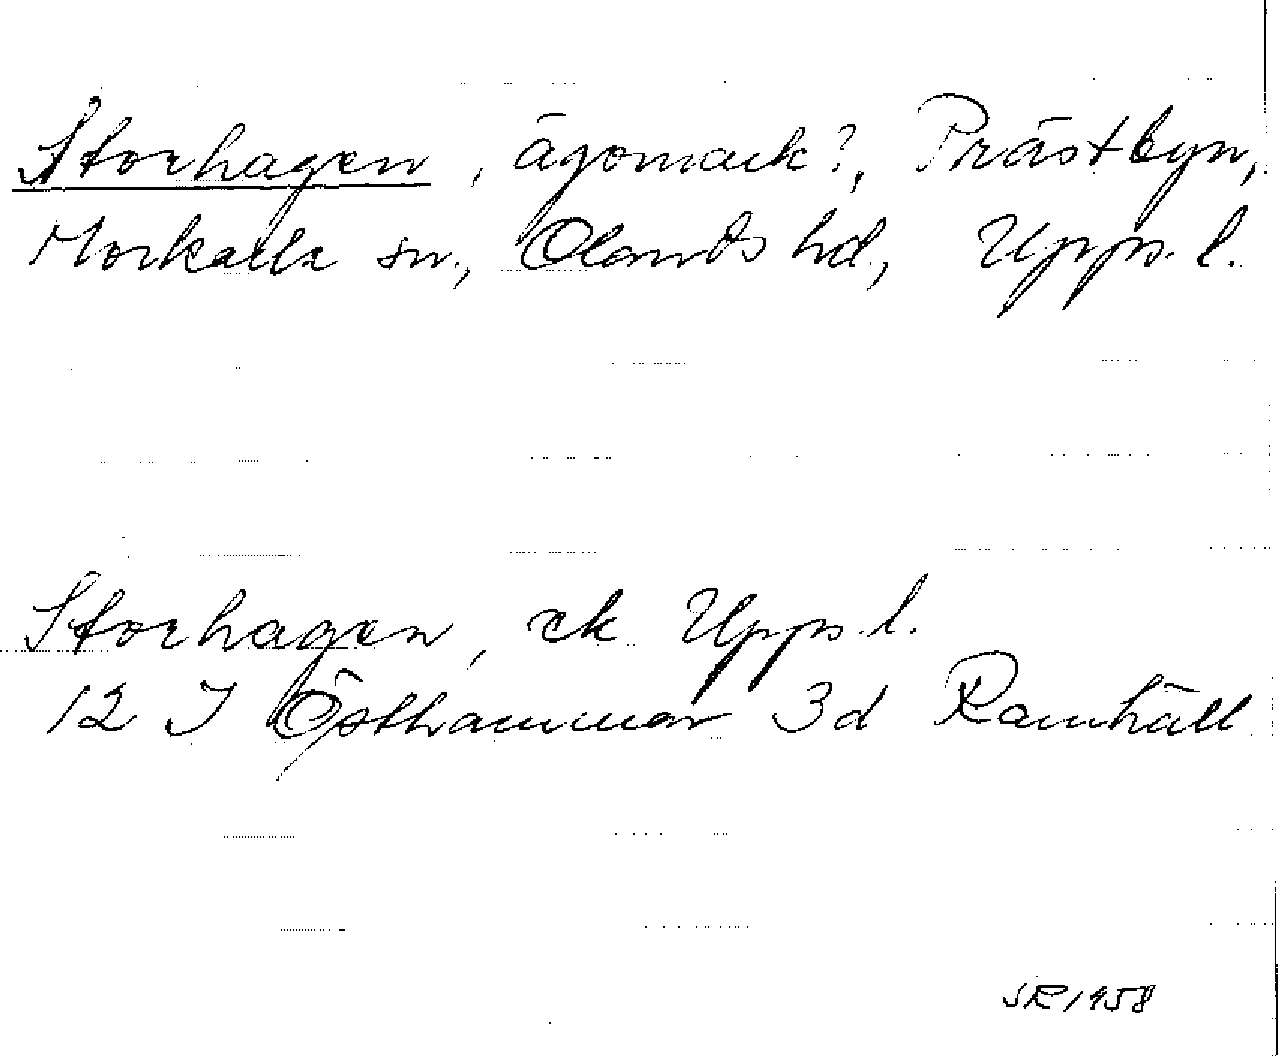 Storhagen, ägomark?, Prästbyn,
Morkarla sn., Olands hd, Upps. l.
Storhagen, ek Upps. l.
12 I Östhammar 3d Ramhäll
SR 1958